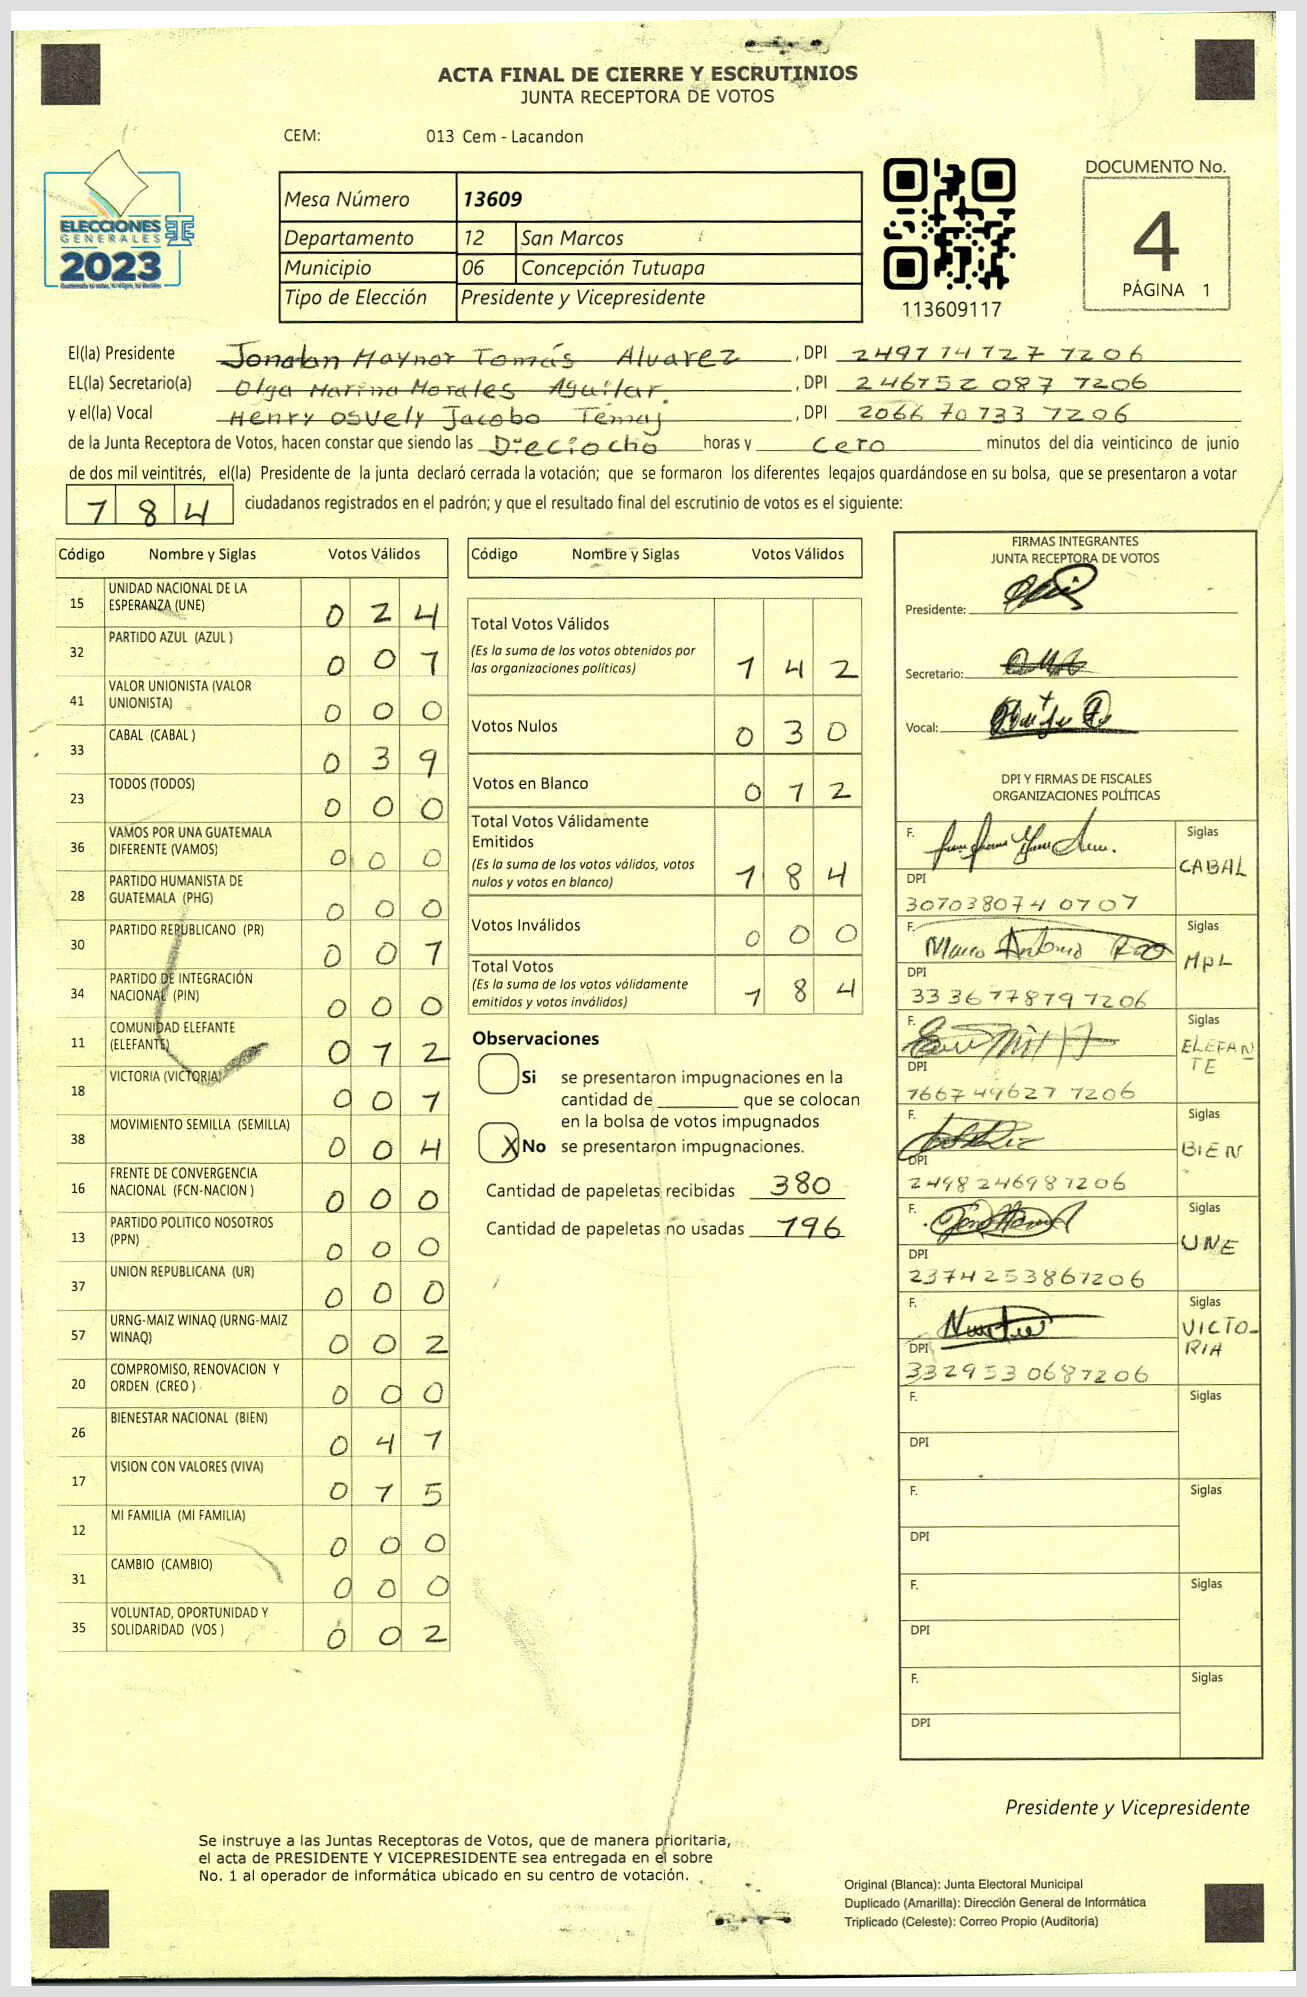 ACTA FINAL DE CIERRE Y ESCRUTINIOS
JUNTA RECEPTORA DE VOTOS
CEM: 013 Cem - Lacandon
DOCUMENTO No.
4
PÁGINA 1
ELECCIONES
GENERALES
2023
Mesa Número 13609
Departamento 12 San Marcos
Municipio 06 Concepción Tutuapa
Tipo de Elección Presidente y Vicepresidente
113609117
El(la) Presidente Jonatan Maynor Tomás Alvarez , DPI 249714727 1206
EL(la) Secretario(a) Olga Marina Morales Aguilar. , DPI 246152 087 1206
y el(la) Vocal Henry Osvely Jacobo Témaj , DPI 2066 10 733 1206
de la Junta Receptora de Votos, hacen constar que siendo las Dieciocho horas y Cero minutos del día veinticinco de junio
de dos mil veintitrés, el(la) Presidente de la junta declaró cerrada la votación; que se formaron los diferentes legajos quardándose en su bolsa, que se presentaron a votar
184 ciudadanos registrados en el padrón; y que el resultado final del escrutinio de votos es el siguiente:
Código Nombre y Siglas Votos Válidos
15 UNIDAD NACIONAL DE LA ESPERANZA (UNE) 024
32 PARTIDO AZUL (AZUL ) 001
41 VALOR UNIONISTA (VALOR UNIONISTA) 000
33 CABAL (CABAL ) 039
23 TODOS (TODOS) 000
36 VAMOS POR UNA GUATEMALA DIFERENTE (VAMOS) 000
28 PARTIDO HUMANISTA DE GUATEMALA (PHG) 000
30 PARTIDO REPUBLICANO (PR) 001
34 PARTIDO DE INTEGRACIÓN NACIONAL (PIN) 000
11 COMUNIDAD ELEFANTE (ELEFANTE) 012
18 VICTORIA (VICTORIA) 001
38 MOVIMIENTO SEMILLA (SEMILLA) 004
16 FRENTE DE CONVERGENCIA NACIONAL (FCN-NACION ) 000
13 PARTIDO POLITICO NOSOTROS (PPN) 000
37 UNION REPUBLICANA (UR) 000
57 URNG-MAIZ WINAQ (URNG-MAIZ WINAQ) 002
20 COMPROMISO, RENOVACION Y ORDEN (CREO ) 000
26 BIENESTAR NACIONAL (BIEN) 041
17 VISION CON VALORES (VIVA) 015
12 MI FAMILIA (MI FAMILIA) 000
31 CAMBIO (CAMBIO) 000
35 VOLUNTAD, OPORTUNIDAD Y SOLIDARIDAD (VOS ) 002
Código Nombre y Siglas Votos Válidos
Total Votos Válidos 142
(Es la suma de los votos obtenidos por
las organizaciones políticas)
Votos Nulos 030
Votos en Blanco 012
Total Votos Válidamente
Emitidos 184
(Es la suma de los votos válidos, votos
nulos y votos en blanco)
Votos Inválidos 000
Total Votos 184
(Es la suma de los votos válidamente
emitidos y votos inválidos)
Observaciones
Si se presentaron impugnaciones en la
cantidad de ________ que se colocan
en la bolsa de votos impugnados
X No se presentaron impugnaciones.
Cantidad de papeletas recibidas 380
Cantidad de papeletas no usadas 196
FIRMAS INTEGRANTES
JUNTA RECEPTORA DE VOTOS
Presidente:
Secretario:
Vocal:
DPI Y FIRMAS DE FISCALES
ORGANIZACIONES POLÍTICAS
F. Siglas
CABAL
DPI
307038074 0101
F. Marco Antonio Siglas
MPL
DPI
Siglas
ELEFANTE
F.
DPI
1661 49627 1206
F. Siglas
BIEN
DPI
2498 24698 1206
F. Siglas
UNE
DPI
2374253861206
F. Siglas
VICTORIA
DPI
3329530681206
F. Siglas
DPI
F. Siglas
DPI
F. Siglas
DPI
F. Siglas
DPI
Presidente y Vicepresidente
Se instruye a las Juntas Receptoras de Votos, que de manera prioritaria,
el acta de PRESIDENTE Y VICEPRESIDENTE sea entregada en el sobre
No. 1 al operador de informática ubicado en su centro de votación.
Original (Blanca): Junta Electoral Municipal
Duplicado (Amarilla): Dirección General de Informática
Triplicado (Celeste): Correo Propio (Auditoría)